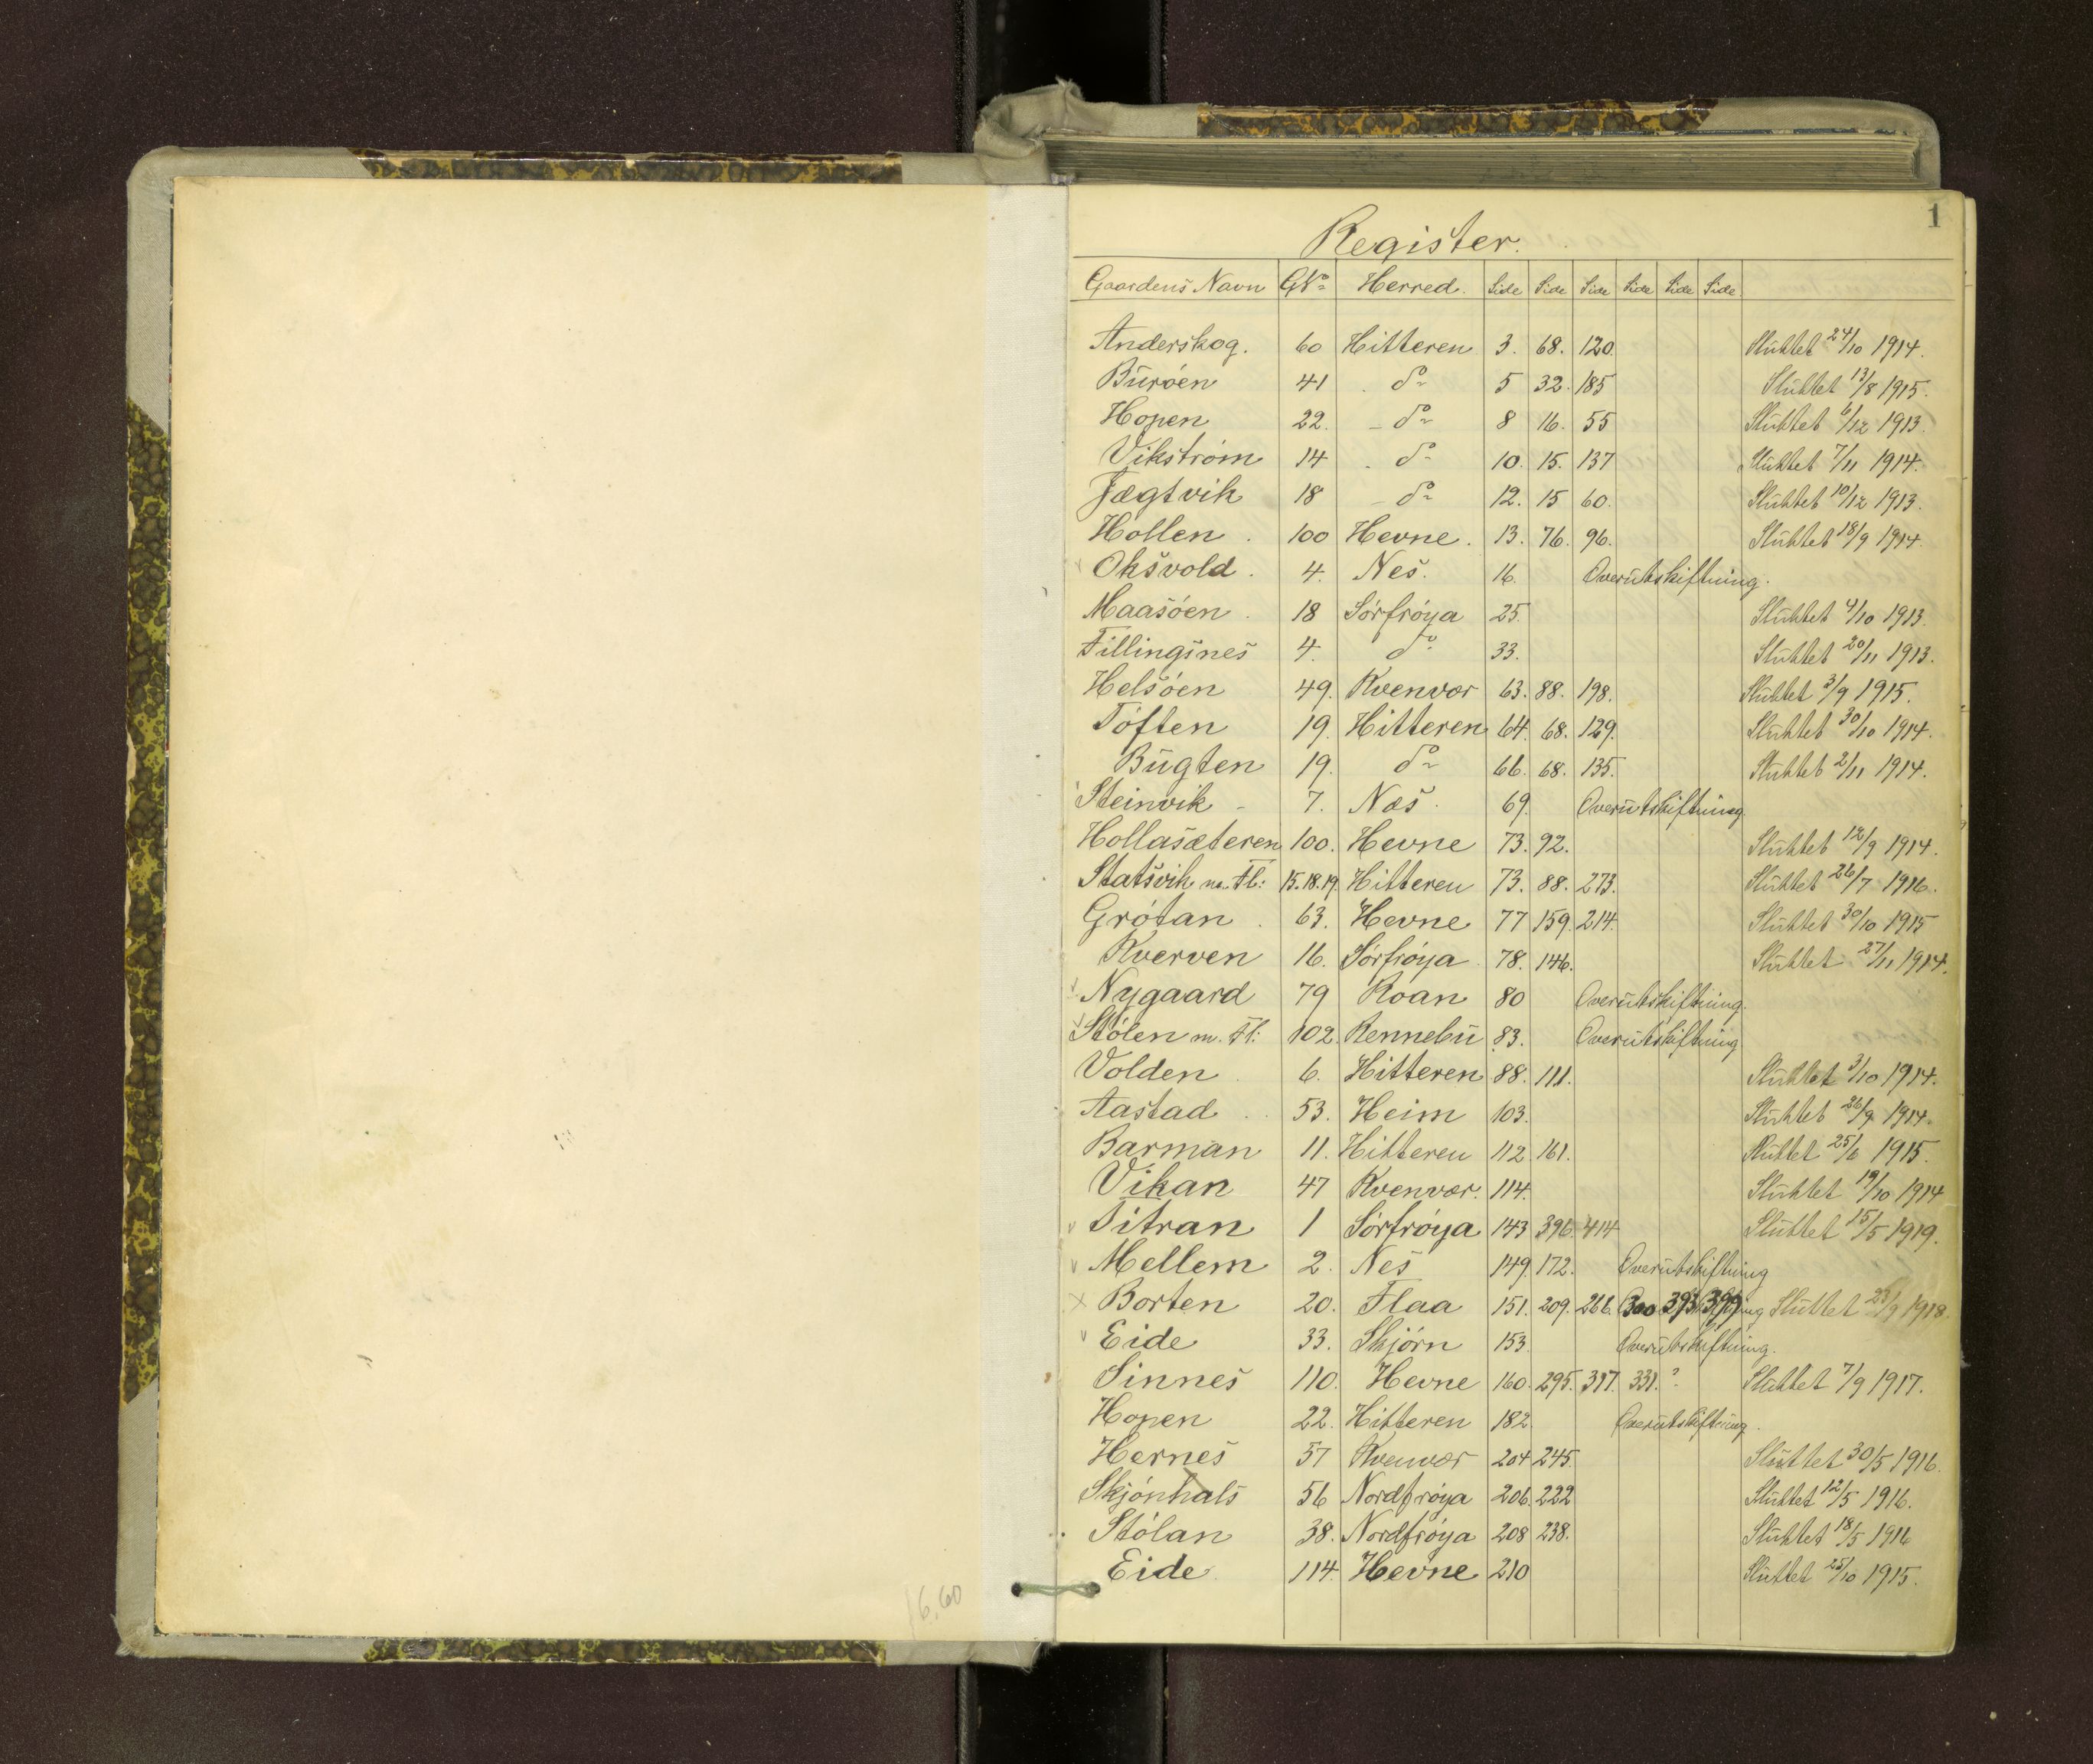 1
Register.
Gaardens Navn GNo Herred. Side Side Side Side Side Side
Anderskog. 60 Hitteren 3. 68. 120. Sluttet 24/10 1914.
Buröen 41 do 5 32. 185 Sluttet 13/8 1915.
Hopen 22. do 8 16. 55 Sluttet 6/12 1913.
Vikström 14 do 10. 15. 137 Sluttet 7/11 1914.
Jægtvik 18 do 12. 15 60. Sluttet 10/12 1913.
Hollen 100 Hevne. 13. 76. 96. Sluttet 18/9 1914.
Oksvold. 4. Nes. 16. Overutskiftning.
Maasöen. 18 Sörfröya 25. Sluttet 4/10 1913.
Fillingsnes 4. do 33. Sluttet 20/11 1913.
Helsöen 49. Kvenvær 63. 88. 198. Sluttet 3/9 1915.
Töften 19. Hitteren 64. 68. 129. Sluttet 30/10 1914.
Bugten 19. do 66. 68. 135. Sluttet 2/11 1914.
Steinvik 7. Næs. 69. Overutskiftning.
Hollasæteren 100. Hevne 73. 92. Sluttet 12/9 1914.
Statsvik m. Fl: 15.18.19. Hitteren 73. 88. 273. Sluttet 26/7 1916.
Grötan. 63. Hevne 77 159. 214. Sluttet 30/10 1915
Kverven 16. Sörfröya 78. 146. Sluttet 27/11 1914.
v Nygaard 79 Roan 80 Overutskiftning.
v Stölen m. Fl: 102. Rennebu 83. Overutskiftning
Volden 6. Hitteren 88. 111. Sluttet 3/10 1914.
Aastad 53. Heim 103. Sluttet 26/9 1914.
Barman 11. Hitteren 112. 161. Sluttet 25/6 1915.
Vikan 47 Kvenvær. 114. Sluttet 19/10 1914
v Titran 1 Sörfröya 143 396. 414 Sluttet 15/5 1919.
v Mellem 2. Nes 149. 172. Overutskiftning
x Borten 20. Flaa 151. 209. 266. 300 393 399 Sluttet 23/9 1918.
v Eide 33. Skjörn 153. Overutskiftning.
Sinnes 110. Hevne 160. 295. 317. 331. ? Sluttet 7/9 1917.
Hopen 22. Hitteren 182. Overutskiftning.
Hernes 57 Kvenvær 204 245. Sluttet 30/5 1916.
Skjönhals 56 Nordfröya 206. 222 Sluttet 12/5 1916.
Stölan 38. Nordfröya 208 238. Sluttet 18/5 1916
Eide 114. Hevne 210 Sluttet 25/10 1915.
16.60